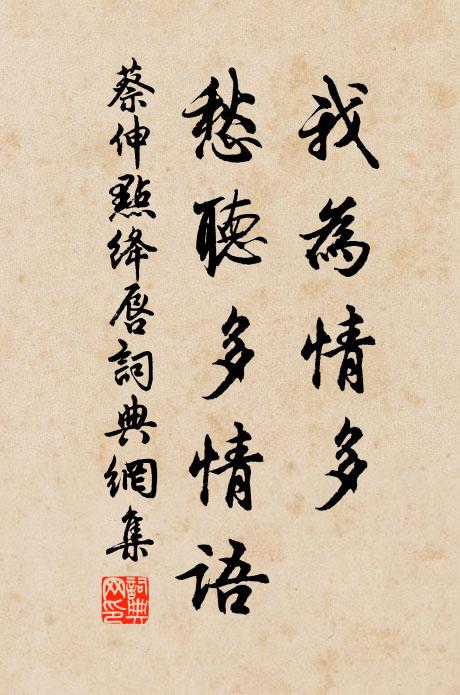 我為情多
愁聽多情語
蔡伸點絳唇詞典網集
詞典網印